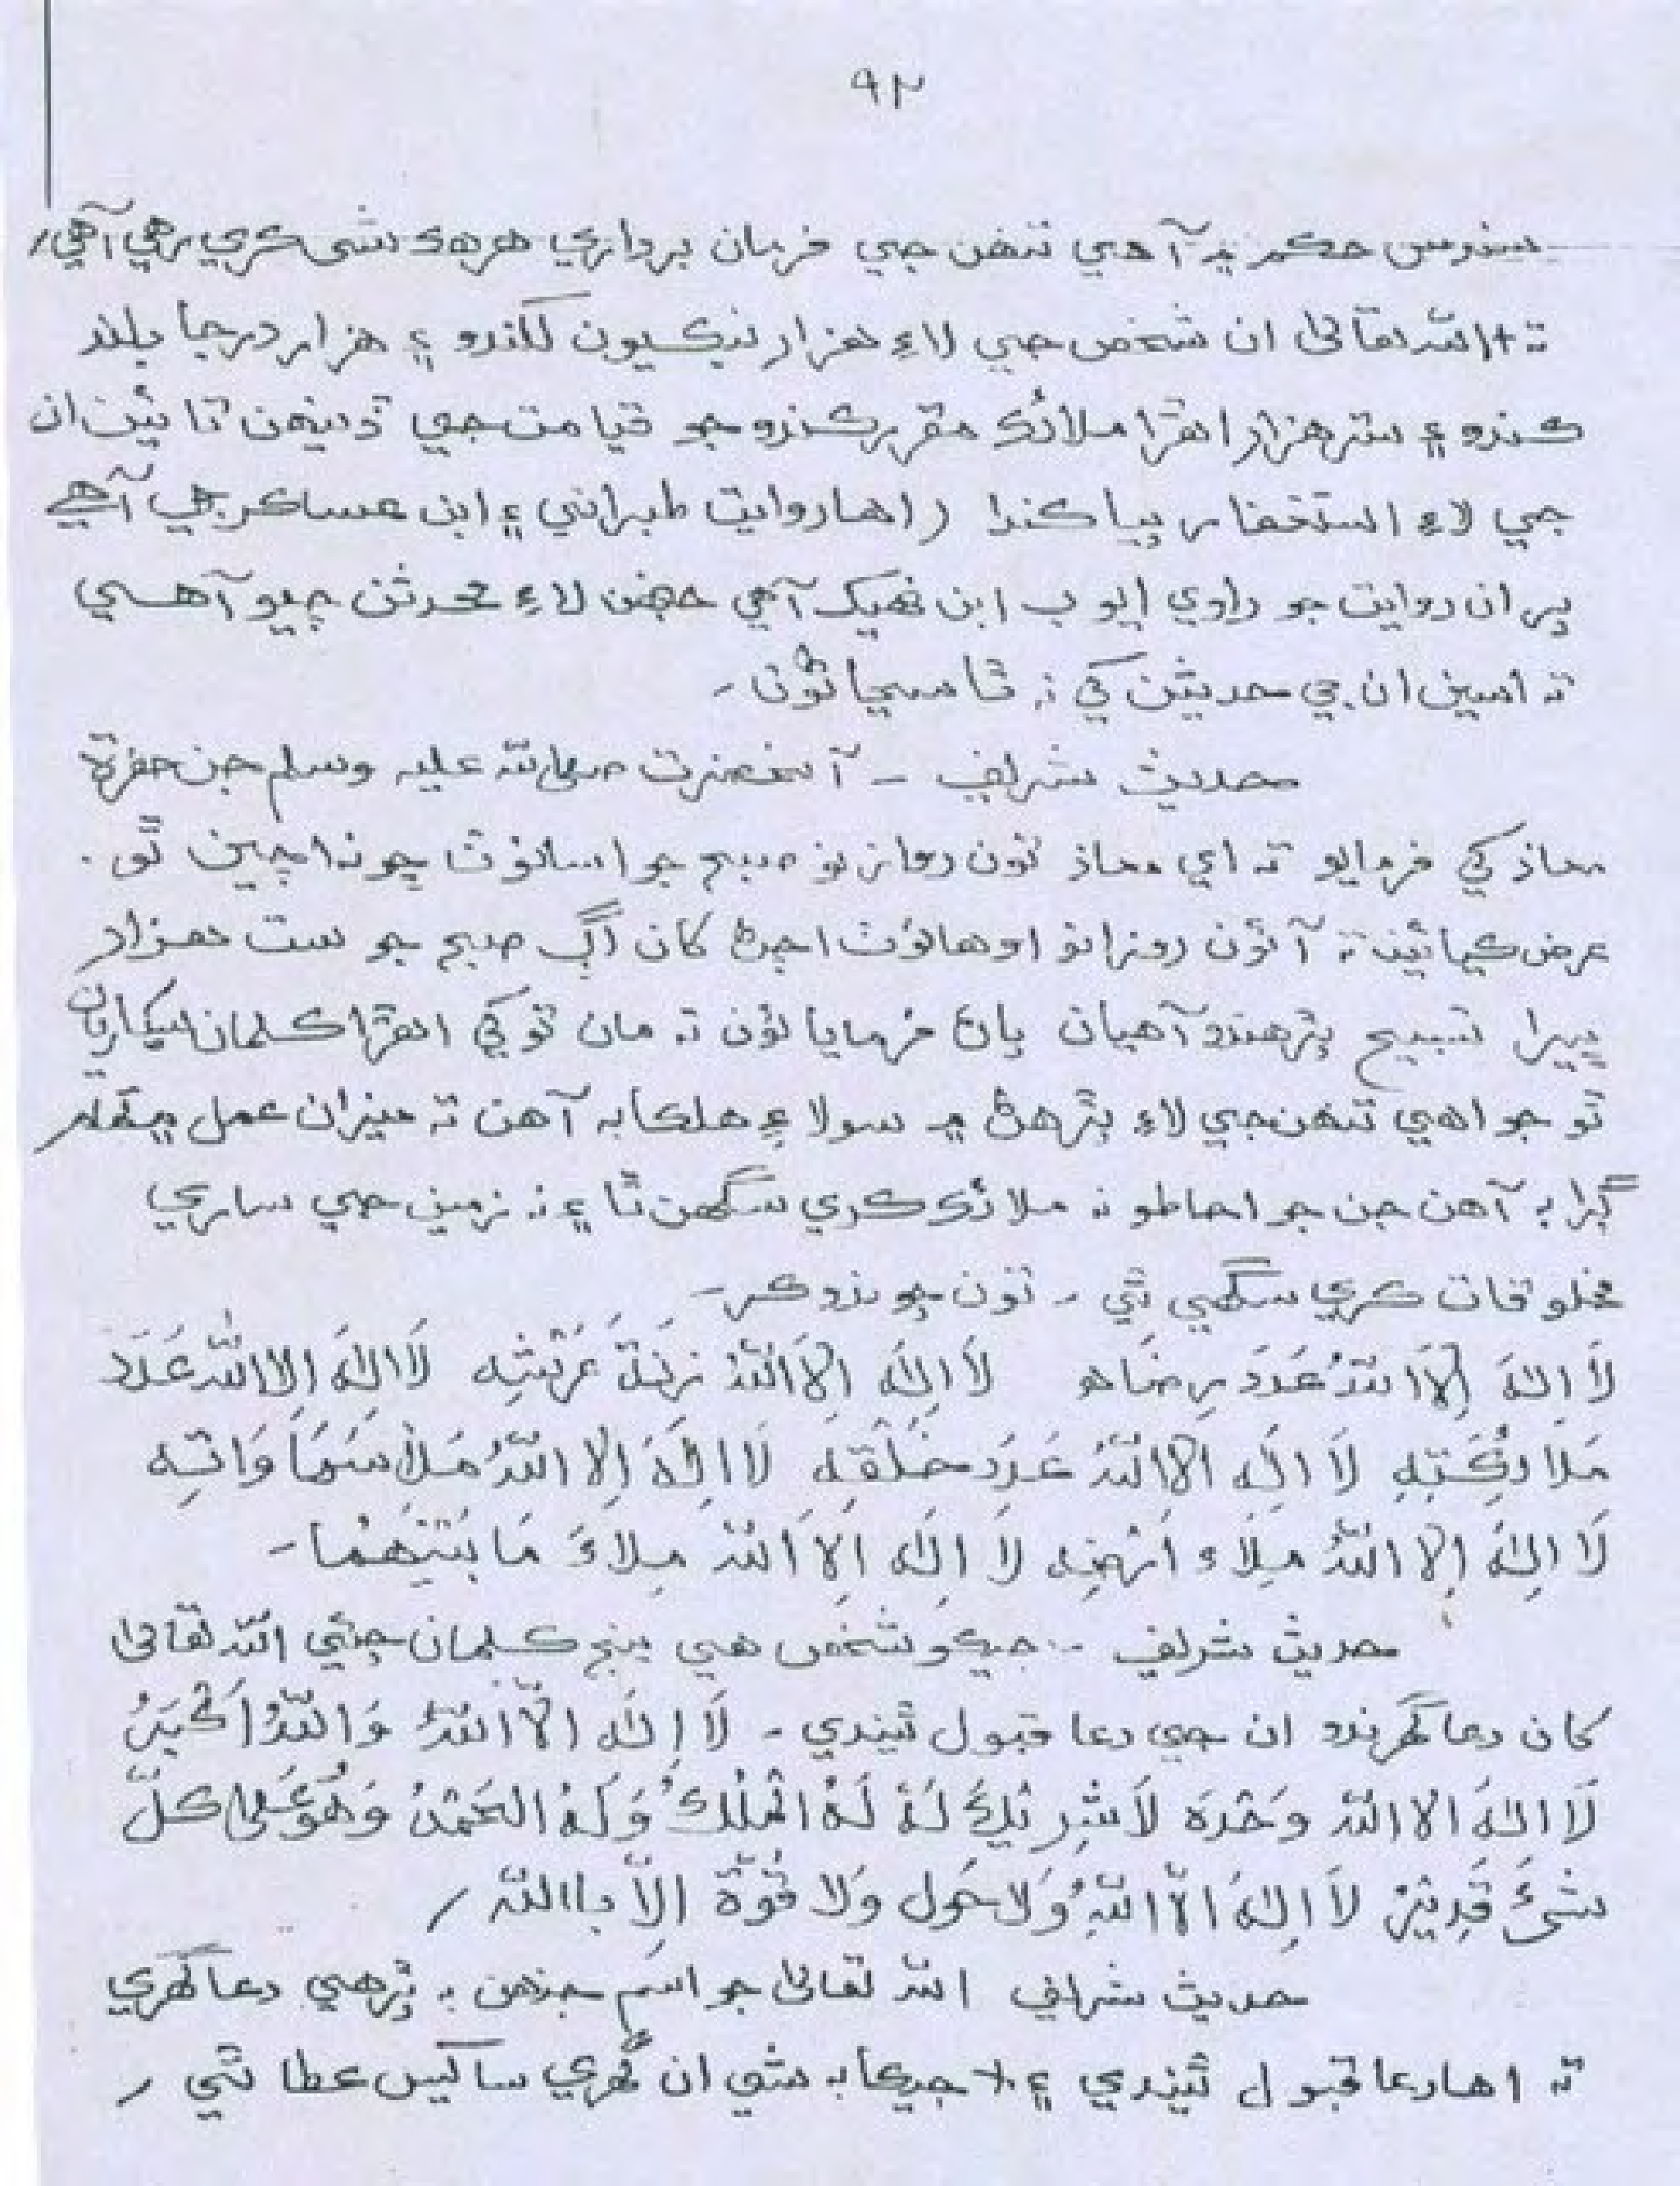 ٩٢
سندس حڪم ۾ آهي تنهن جي فرمان برداري هر هڪ شئي ڪري رهي آهي،
ته الله تعاليٰ ان شخص جي لاءِ هزار نيڪيون لکندو ۽ هزار درجا بلند
ڪندو ۽ ستر هزار اهڙا ملائڪ مقرر ڪندو جو قيامت جي ڏينهن تائين ان
جي لاءِ استغفار پيا ڪندا (اها روايت طبراني ۽ ابن عساڪر جي آهي
پر ان روايت جو راوي ايوب ابن نهيڪ آهي جنهن لاءِ محدثن چيو آهي
ته اسين ان جي حديثن کي نه ٿا سڃاڻون -
حديث شريف - آنحضرت صلي الله عليه وسلم جن حضرة
معاذ کي فرمايو ته اي معاذ تون روزانو صبح جو اسانوٽ ڇو نه اچين ٿو.
عرض ڪيائين ته آئون روزانو اوهانوٽ اچڻ کان اڳ صبح جو ست هزار
ڀيرا تسبيح پڙهندو آهيان پاڻ فرمايائون ته مان توکي اهڙا ڪلمان سيکاريان
ٿو جو اهي تنهن جي لاءِ پڙهڻ ۾ سولا ۽ هلڪا به آهن ته ميزان عمل ۾
ڳرا به آهن جن جو احاطو نه ملائڪ ڪري سگهن ٿا ۽ نه زمين جي ساري
مخلوقات ڪري سگهي ٿي - تون چوندو ڪر -
لَا اِلٰهَ اِلَّا اللّٰهُ عَدَدَ رِضَاهِ لَا اِلٰهَ اِلَّا اللّٰهُ زِنَةَ عَرْشِهِ لَا اِلٰهَ اِلا اللّٰهُ عَدَدَ
مَلَائِكَتِهِ لَا اِلٰهَ اِلا اللّٰهُ عَدَدَ خَلْقِهِ لَا اِلٰهَ اِلا اللّٰهُ مِلَاْ سَمَاوَاتِهِ
لَا اِلٰهَ اِلا اللّٰهُ مِلَاءَ اَرْضِهِ لَا اِلٰهَ اِلا اَللّٰهُ مِلَاءَ مَا بَيْنَهُمَا -
حديث شريف - جيڪو شخص هي پنج ڪلمان چئي الله تعاليٰ
کان دعا گهرندو ان جي دعا قبول ٿيندي - لَا اِلٰهَ اِلّا اللّٰهُ وَاللّٰهُ اَكْبَرُ
لَا اِلٰهَ اِلا اللّٰهُ وَحْدَهُ لَا شَرِيْكَ لَهُ لَهُ الْمُلْكُ وَلَهُ الْحَمْدُ وَهُوَ عَليٰ كُلِّ
شَيْءٍ قَدِيْرٌ لَا اِلٰهَ اِلّا اللّٰهُ وَلَا حَولَ وَلَا قُوَّةَ اِلّا باالله /
حديث شريف الله تعاليٰ جو اسم جنهن به پڙهي دعا گهري
ته اها دعا قبول ٿيندي ۽ جيڪا به شئي ان گهري سا کيس عطا ٿي /